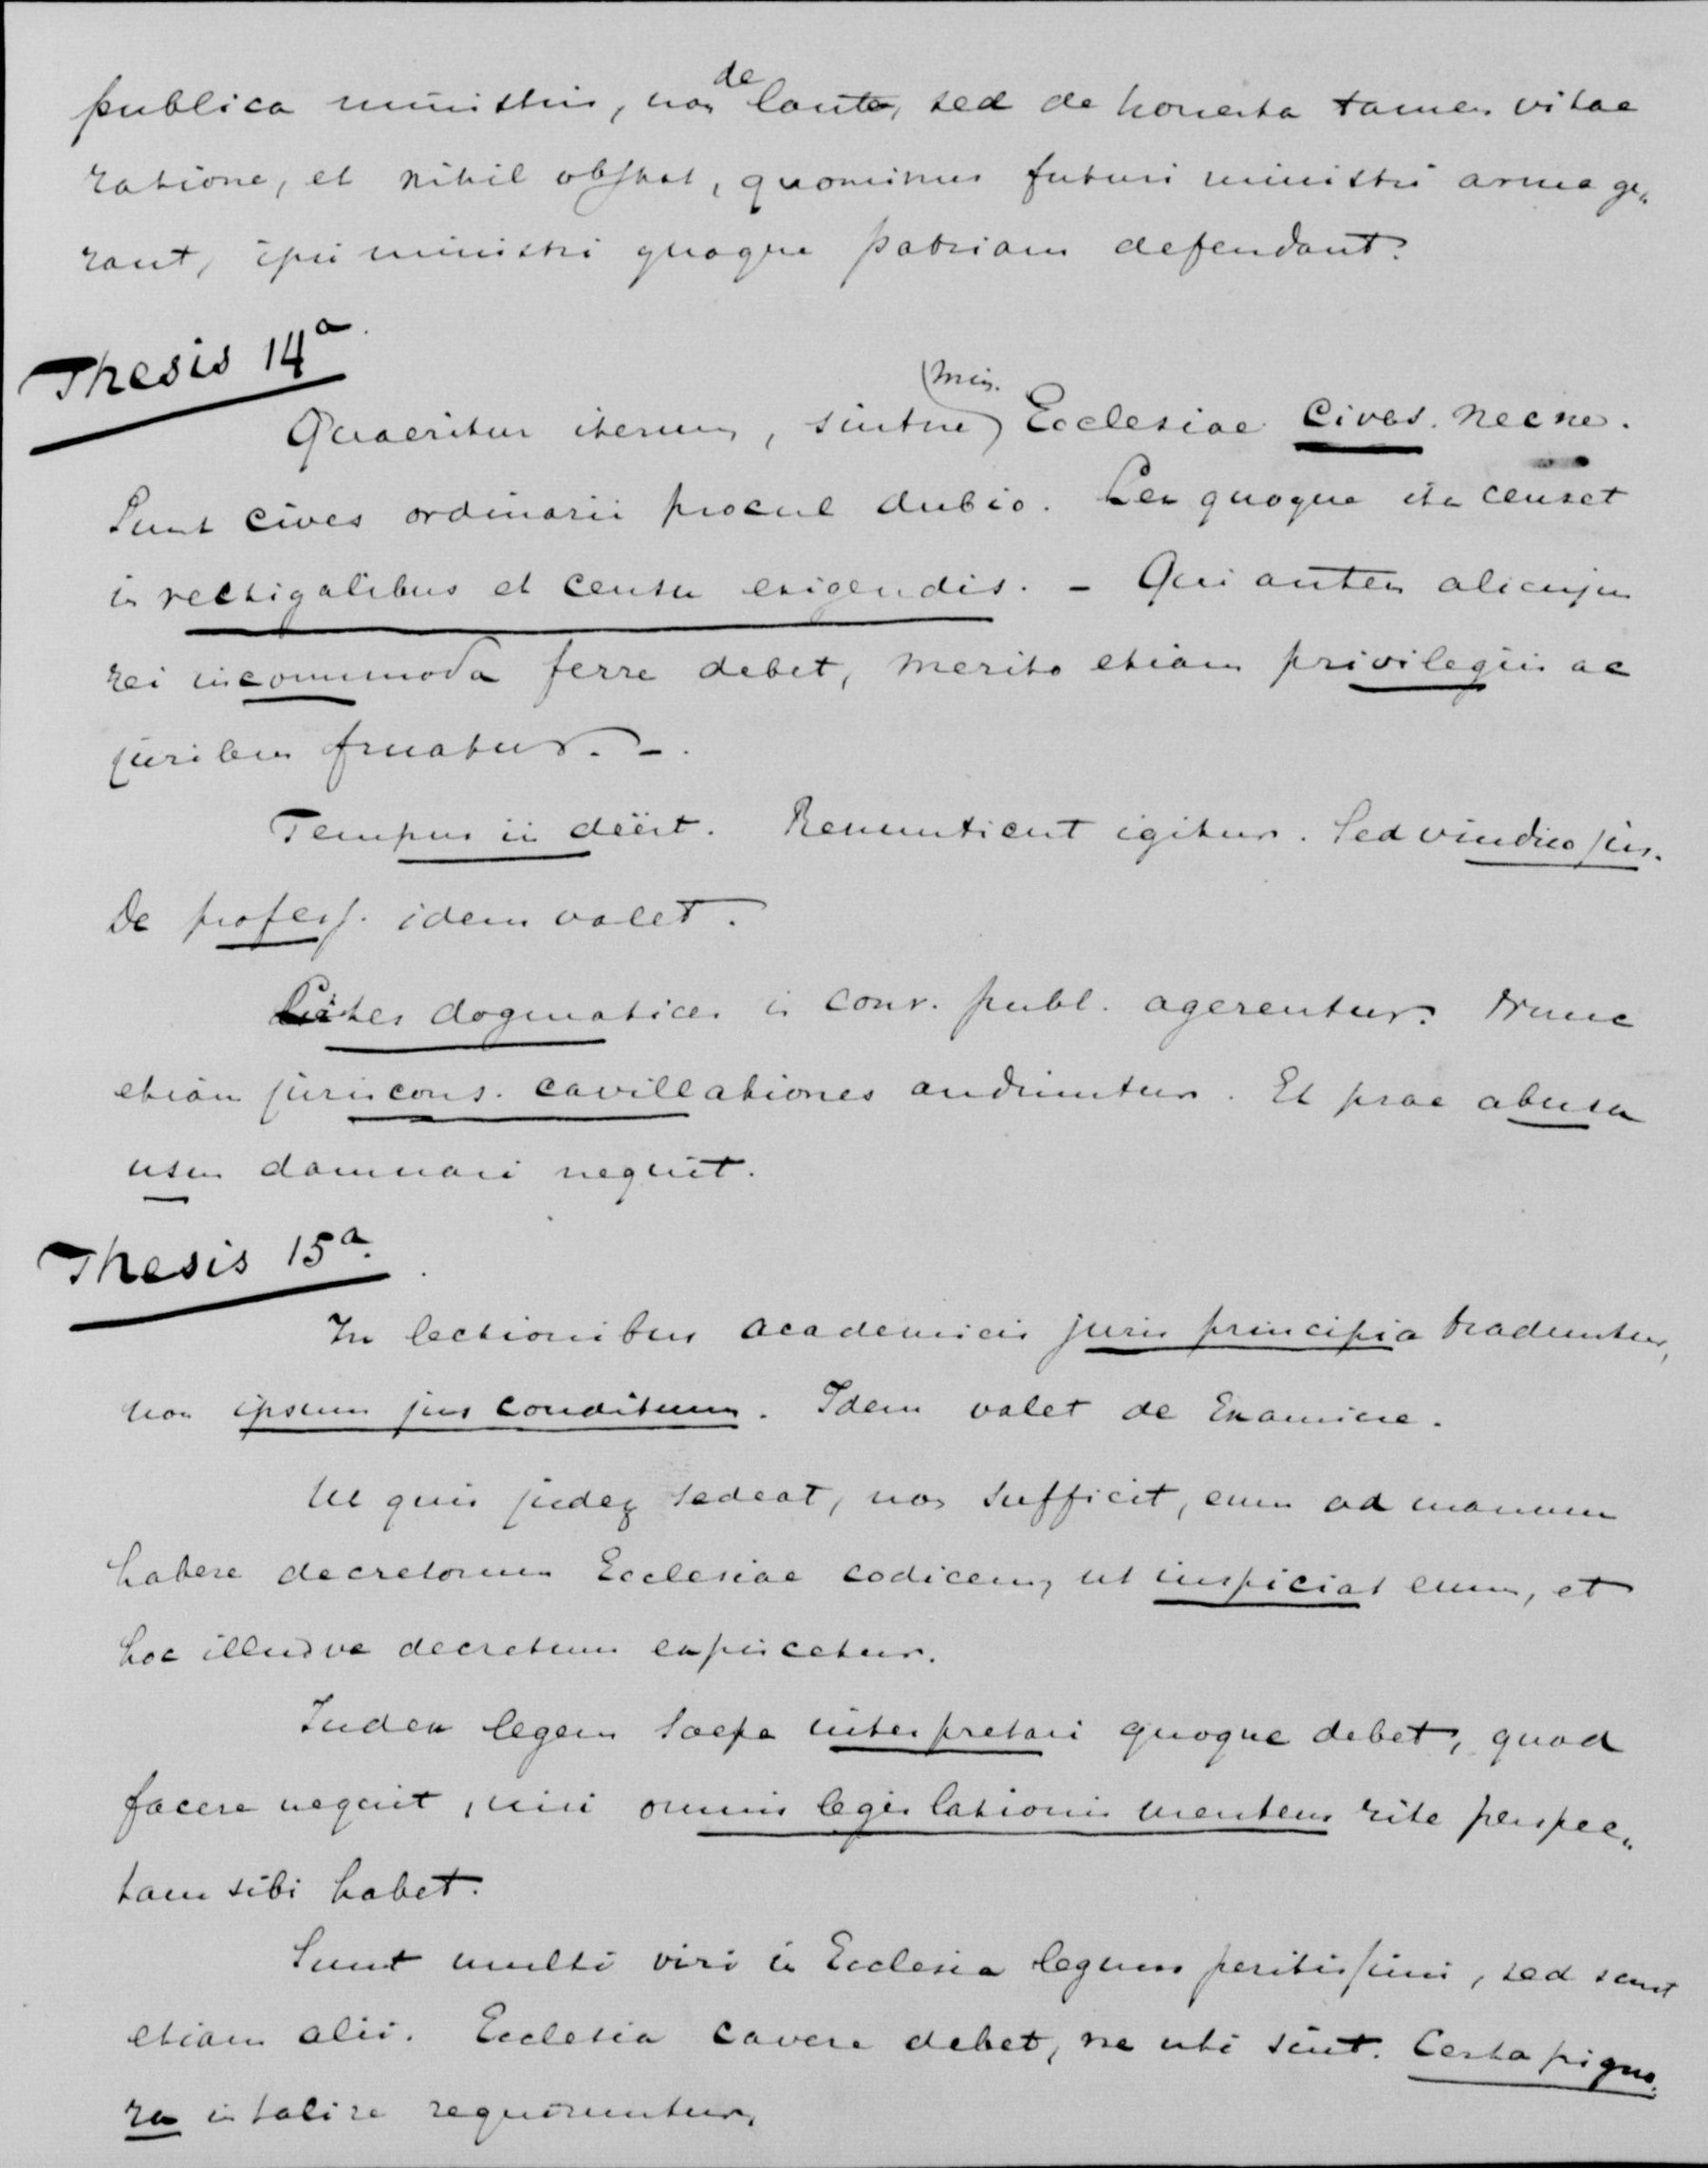 publica ministris, non de laute, sed de honesta tamen vitae
ratione, et nihil obstat, quominus futuri ministri arma ge„
rant, ipsi ministri quoque patriam defendant.
Thesis 14a.
Quaeritur iterum, sintne (min.) Ecclesiae Cives. necne.
Sunt cives ordinarii procul dubio. Lex quoque ita censet
in vectigalibus et censu exigendis. – Qui autem alicujus
rei incommoda ferre debet, merito etiam privilegiis ac
juribus fruatur. –.
Tempus iis deëst. Renuntient igitur. Sed vindico jus.
De profess. idem valet.
Lites dogmatices in conv. publ. agerentur. Nunc
etiam juriscons. cavillationes audiuntur. Et prae abusu
usus damnari nequit.
Thesis 15a.
In lectionibus academicis juris principia traduntur,
non ipsum jus conditum. Idem valet de Examine.
Ut quis judex sedeat, non sufficit, eum ad manum
habere decretorum Ecclesiae codicem, ut inspiciat eum, et
hoc illudve decretum expiscetur.
Iudex legem saepe interpretari quoque debet, quod
facere nequit, nisi omnis legislationis mentem rite perspec„
tam sibi habet.
Sunt multi viri in Ecclesia legum peritissimi, sed sunt
etiam alii. Ecclesia cavere debet, ne ubi sint. Certa pigno„
ra in tali re requiruntur,